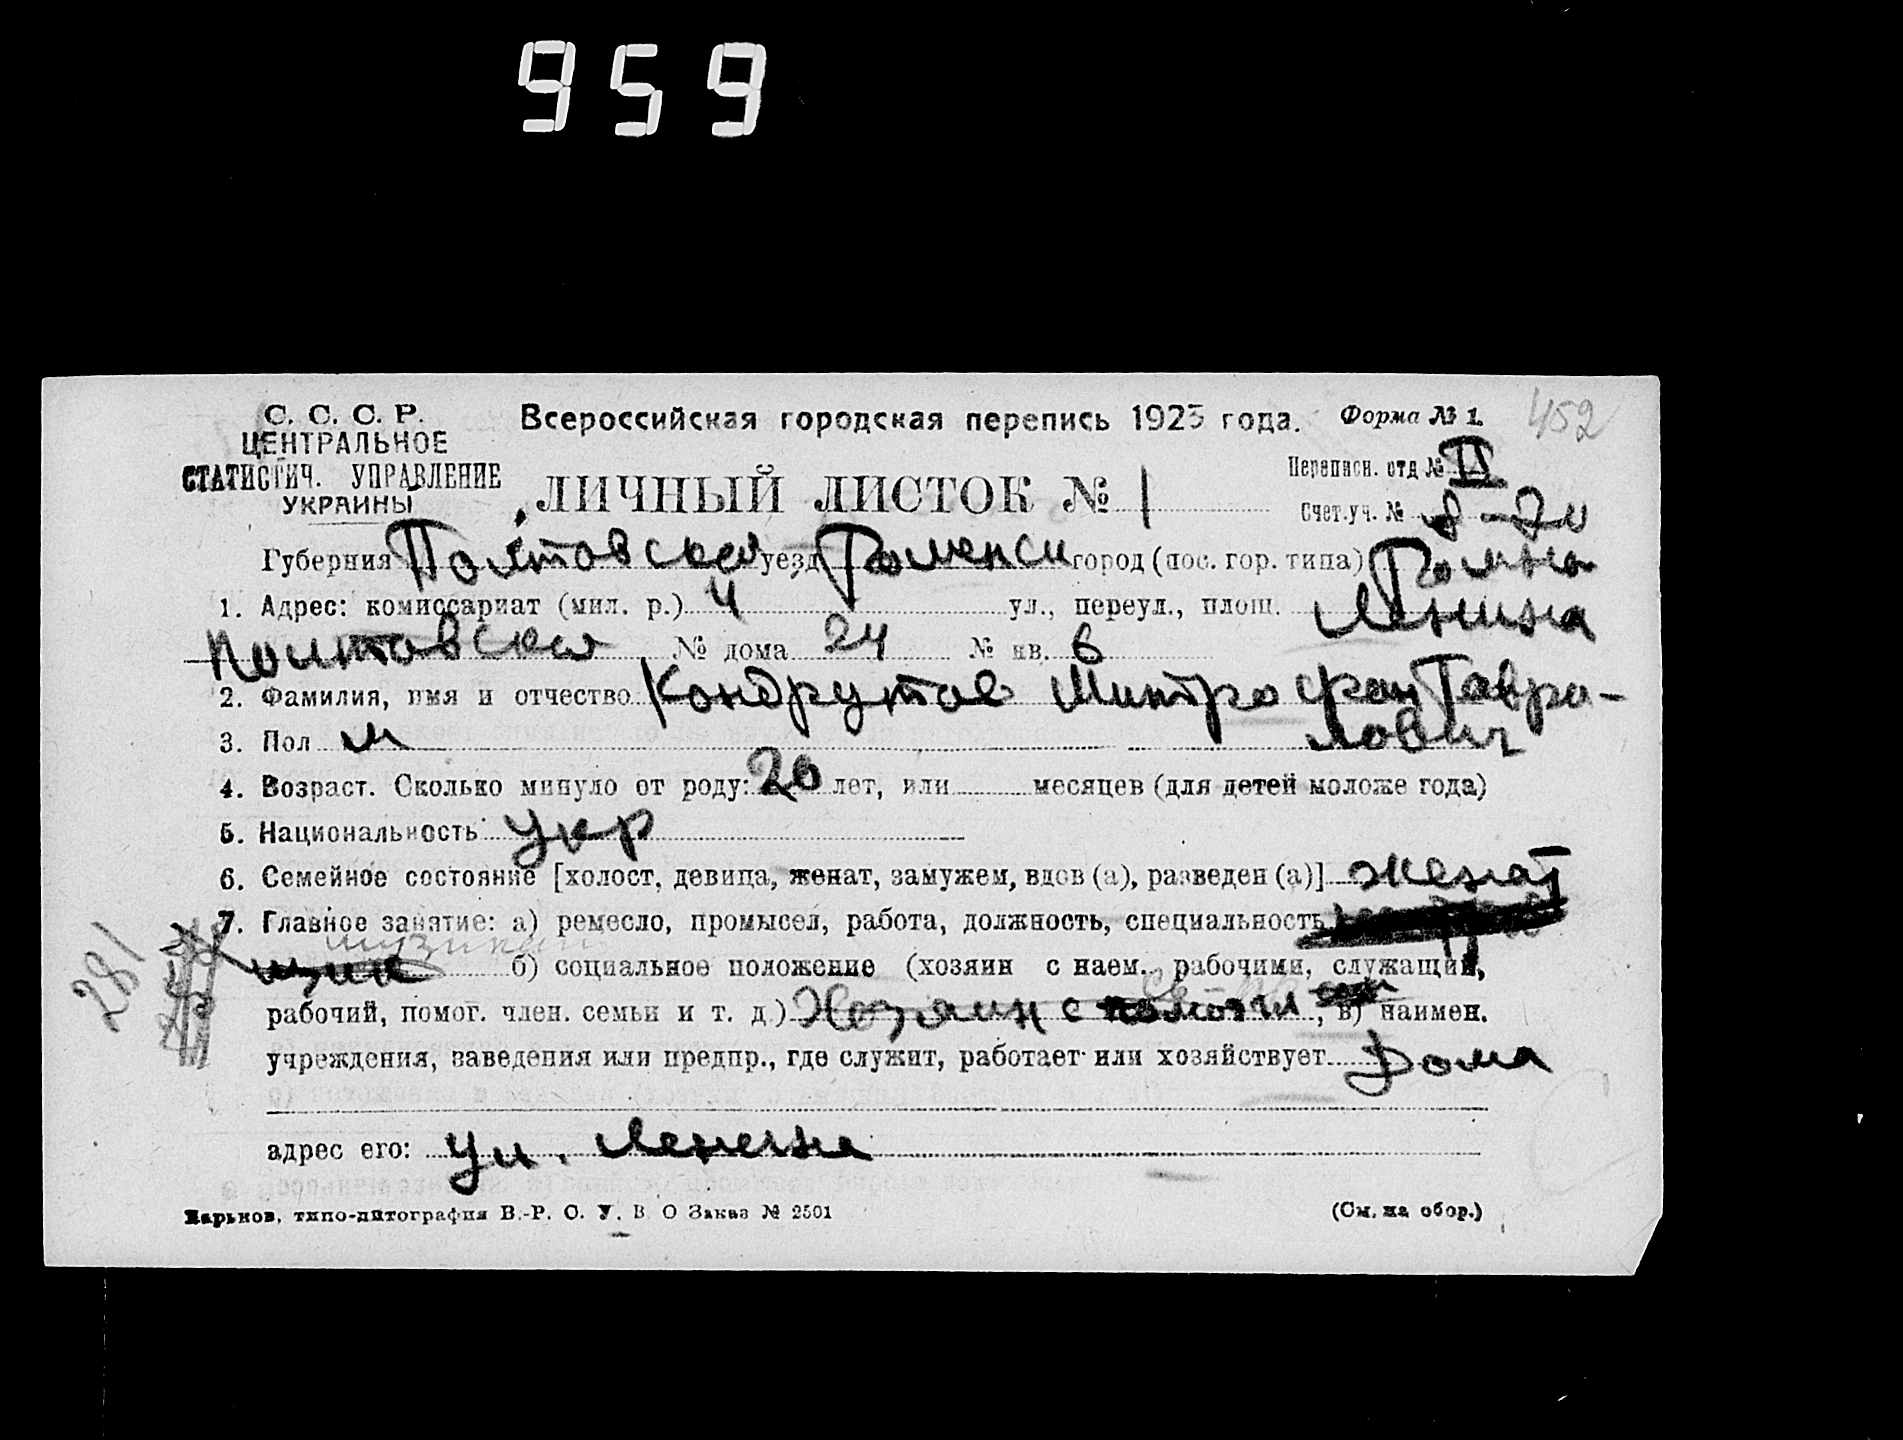 959
С. С. С. Р.
ЦЕНТРАЛЬНОЕ
СТАТИСТИЧ. УПРАВЛЕНИЕ
УКРАИНЫ
Всероссийская городская перепись 1923 года.
Форма № 1.
452
ЛИЧНЫЙ ЛИСТОК № 1
Переписн. отд № II
Счет.уч. № 8-20
Губерния Полтовская уезд Роменск город (пос. гор. типа) Ромны
1. Адрес: комиссариат (мил. р.) 4 ул., переул., площ. Ленина
Полтовская № дома 24 № кв. 6
2. Фамилия, имя и отчество Кондрутов Митрофан Гаври-
лович
3. Пол м
4. Возраст. Сколько минуло от роду: 20 лет, или месяцев (для детей моложе года)
5. Национальность укр
6. Семейное состояние [холост, девица, женат, замужем, вдов (а), разведен (а)] женат
7. Главное занятие: а) ремесло, промысел, работа, должность, специальность
музикант
щик б) социальное положение (хозяин с наем. рабочими, служащий,
281
рабочий, помог. член. семьи и т. д.) Хозяин с , в) наимен.
учреждения, заведения или предпр., где служит, работает или хозяйствует Дома
адрес его: ул. Ленена
Харьков, типо-литография В.-Р. С. У. В О Заказ № 2501
(См. на обор.)